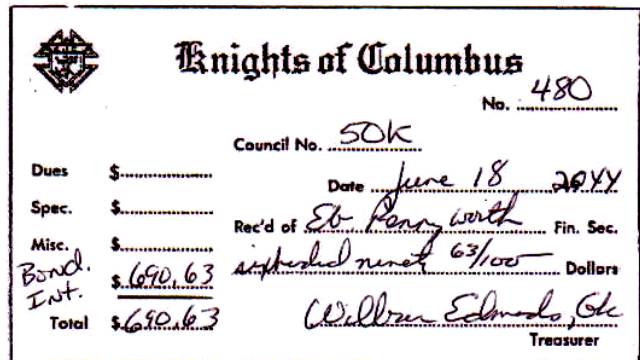 Knights of Columbus
No. 480
Council No. 50K
Dues $
Date June 18 20YY
Spec. $
Rec'd of Eb Pennyworth Fin. Sec.
Misc. $
Bond. Int. $ 690.63 sixhundred ninety 63/100 Dollars
Total $ 690.63
Edmonds, Gk
Treasurer